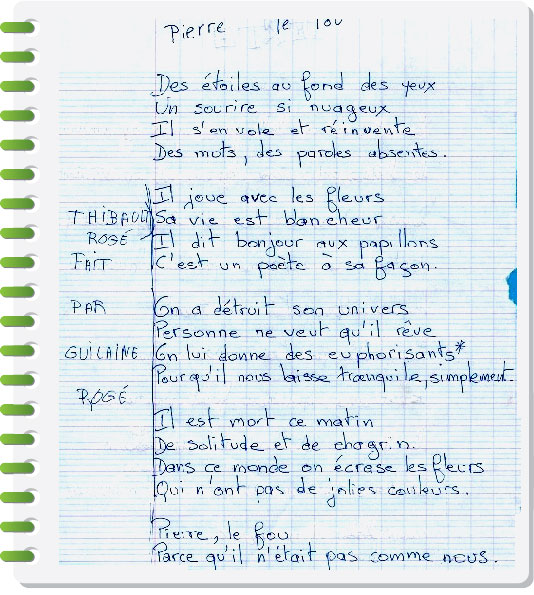 Pierre le fou
Des étoiles au fond des yeux
Un sourire si nuageux
Il s'envole et réinvente
Des mots, des paroles absentes.
Il joue avec les fleurs
THIBAULT Sa vie est blancheur
ROGÉ Il dit bonjour aux papillons
FAIT C'est un poète à sa façon.
PAR On a détruit son univers
Personne ne veut qu'il rêve
GUILAINE On lui donne des euphorisants*
Pour qu'il nous laisse tranquile, simplement.
ROGÉ
Il est mort ce matin
De solitude et de chagrin.
Dans ce monde on écrase les fleurs
Qui n'ont pas de jolies couleurs.
Pierre, le fou
Parce qu'il n'était pas comme nous.